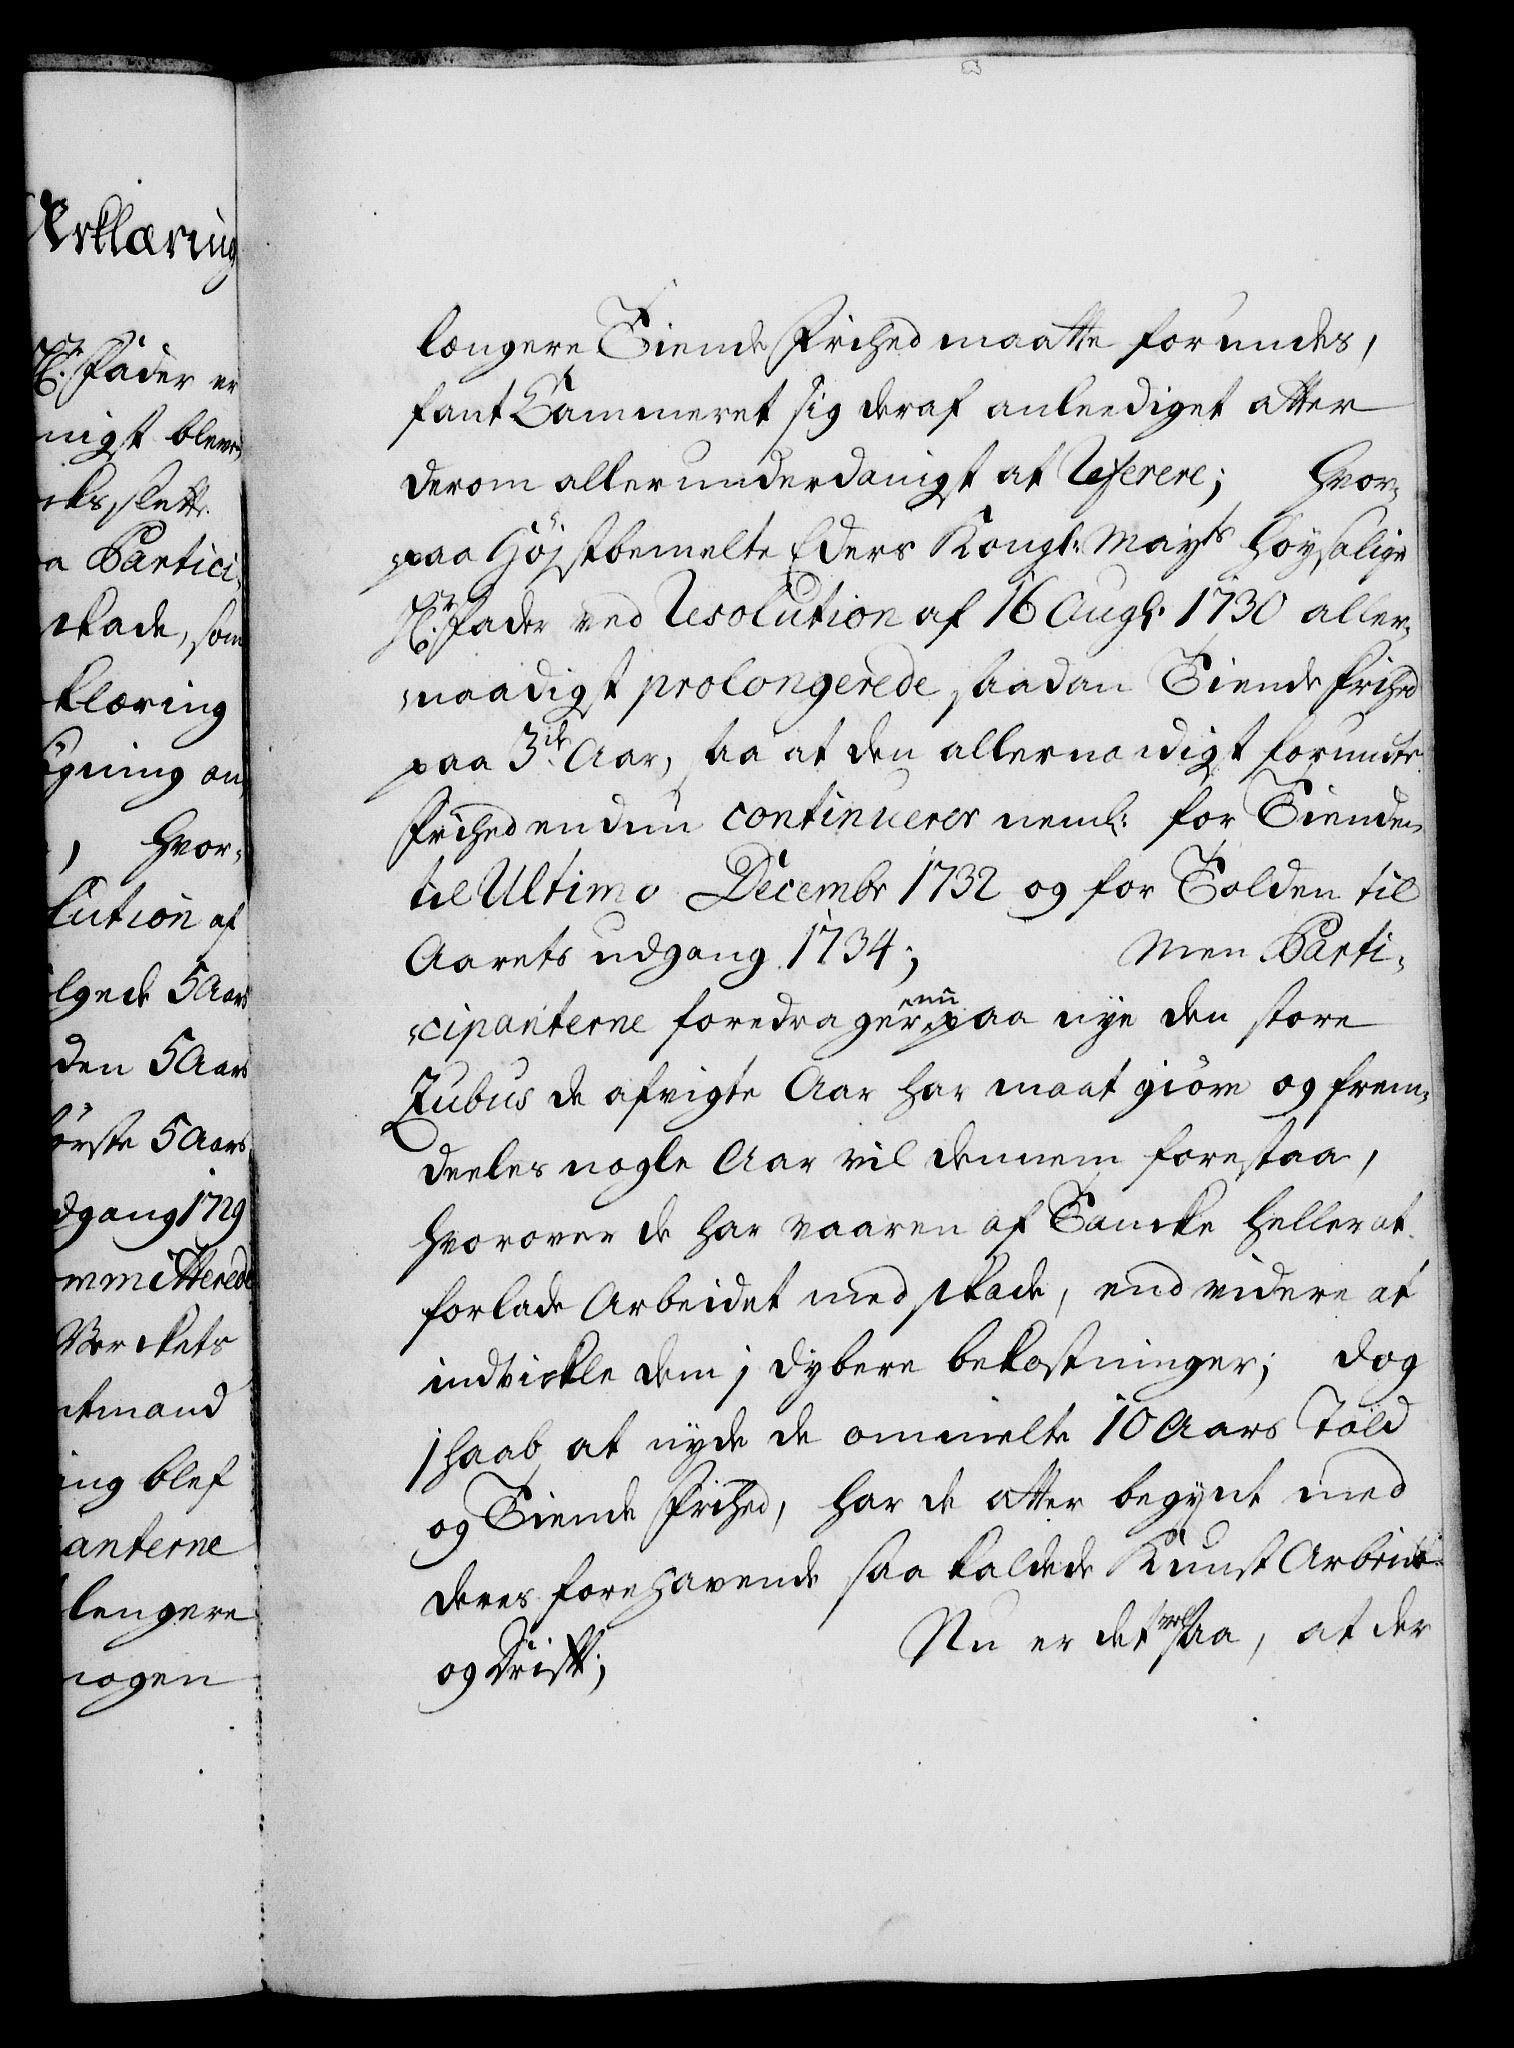 Erklæring
Hr: Fader er
nigst blewe
rks slette
a Partici-
skade, som
klæring
gning an
, hvor-
lution af
lgede 5 Aars
den 5 Aars
örste 5 Aars
dgang 1729
ommitterede
Werckets
tmand
ing blef
anterne
lengere
nogen
længere Tiende Frihed maatte forundes,
fant Cammeret sig deraf anleediget atter
derom allerunderdanigst at Referere; hvor-
paa Höjstbemelte Eders Kongl: Mayts höysalige
Hr: Fader ved Resolution af 16 Aug: 1730 aller-
naadigst prolongerede saadan Tiende Frihed
paa 3de Aar, saa at den allernaadigst forundte
Frihed endnu continuerer neml: for Tienden
til Ultimo Decembr 1732 og for Tolden til
Aarets udgang 1734; Men Parti-
cipanterne foredrager nu paa nye den store
Zubus de afvigte Aar har maat giöre og frem-
deeles nogle Aar vil dennem forestaa,
hvorover de har vaaren af Tancke heller at
forlade Arbeidet med skade, end videre at
indvickle dem j dybere bekostninger; dog
j haab at nyde de ommelte 10 Aars Told
og Tiende Frihed, har de atter begynt med
deres forehavende saa kaldede Kunst Arbeide
og Drift; Nu er det vel saa, at der